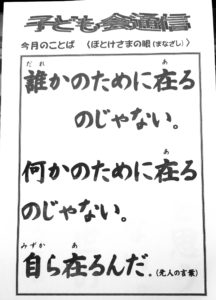 子ども会通信
今月のことば 〈ほとけさまの眼(まなざし)〉
誰かのために在る
のじゃない。
何かのために在る
のじゃない。
自ら在るんだ。(先人の言葉)